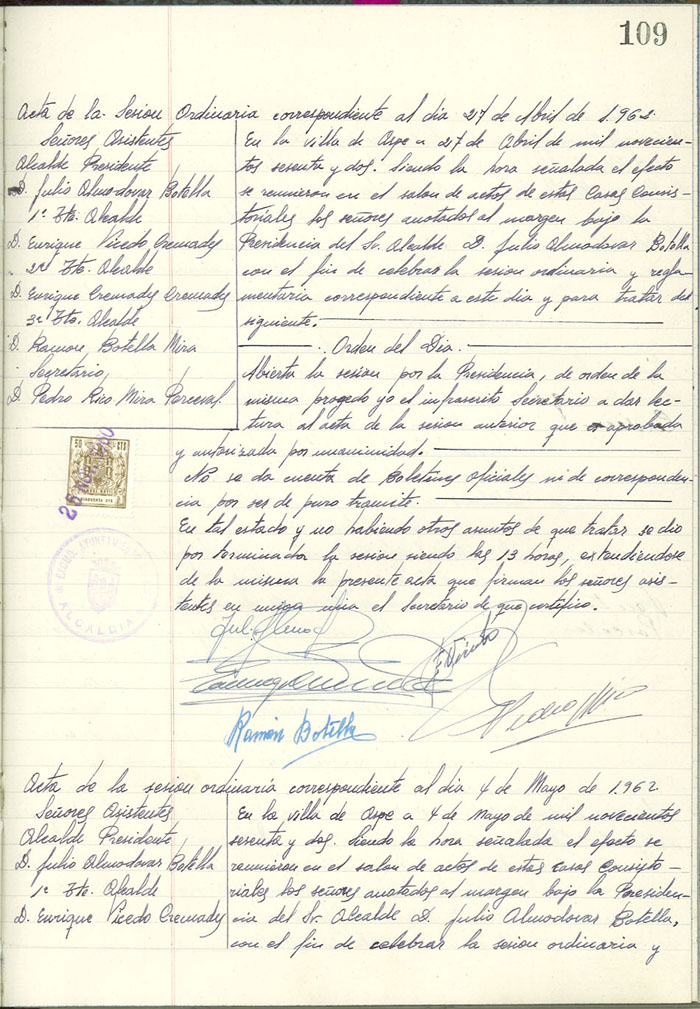 109
Acta de la Sesion Ordinaria correspondiente al dia 27 de Abril de 1.962.
Señores Asistentes
Alcalde Presidente
D. Julio Almodovar Botella
1º Tte. Alcalde
D. Enrique Vicedo Cremades
2º Tte. Alcalde
D. Enrique Cremades Cremades
3º Tte. Alcalde
D. Ramon Botella Mira
Secretário,
D. Pedro Rico Mira Perceval.
En la villa de Aspe a 27 de Abril de mil novecien-
tos sesenta y dos. Siendo la hora señalada el efecto
se reunieron en el salon de actos de estas Casas Consis-
toriales los señores anotados al margen bajo la
Presidencia del Sr. Alcalde D. Julio Almodovar Botella
con el fin de celebrar la sesion ordinaria y regla-
mentaria correspondiente a este dia y para tratar del
siguiente.
Orden del Dia.
Abierta la sesion por la Presidencia, de orden de la
misma procedo yo el infrascrito Secretario a dar lec-
tura al acta de la sesion anterior que es aprobada
y autorizada por unanimidad.
No se da cuenta de Boletines Oficiales ni de corresponden-
cia por ser de puro tramite.
En tal estado y no habiendo otros asuntos de que tratar se dio
por terminada la sesion siendo las 13 horas, extendiendose
de la misma la presente acta que firman los señores asis-
tentes en union mia el Secretario de que certifico.
50 CTS
ALCALDIA
F. Vicedo
Ramón Botella
Pedro Mira
Acta de la sesion ordinaria correspondiente al dia 4 de Mayo de 1.962
Señores Asistentes
Alcalde Presidente
D. Julio Almodovar Botella
1º Tte. Alcalde
D. Enrique Vicedo Cremades
En la villa de Aspe a 4 de Mayo de mil novecientos
sesenta y dos. Siendo la hora señalada el efecto se
reunieron en el salon de actos de estas casas Consisto-
riales los señores anotados al margen bajo la Presiden-
cia del Sr. Alcalde D. Julio Almodovar Botella,
con el fin de celebrar la sesion ordinaria y